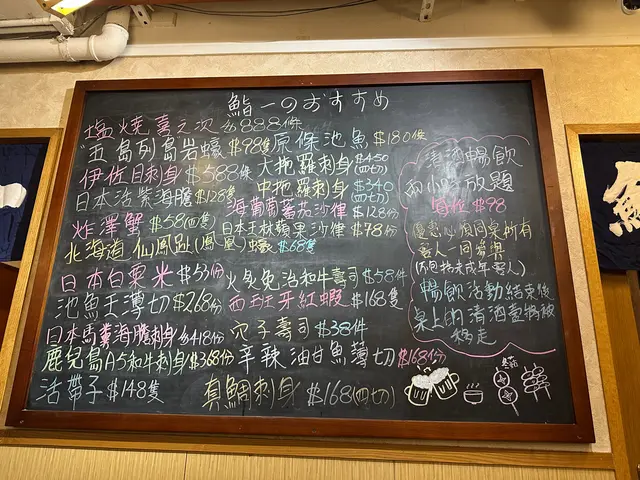 鮨一のおすすめ
塩燒喜之次 $888條
五島列島岩蠔 $98隻 原條池魚 $180條
伊佐目刺身 $588條 大拖羅刺身 $450(四切)
日本活紫海膽 $128份 中拖羅刺身 $340(四切)
海葡萄蕃茄沙律 $128份
炸澤蟹 $58(四隻) 日本王秋蘋果沙律 $78份
北海道 仙鳳趾(鳳凰)蠔 $68隻
日本白粟米 $53份 火炙免治和牛壽司 $58件
池魚王薄切 $268份 西班牙紅蝦 $168隻
日本馬糞海膽刺身 $418份 穴子壽司 $38件
鹿兒島A5和牛刺身 $368份 辛辣油甘魚薄切 $168份
活帶子 $148隻 真鯛刺身 $168(四切)
清酒暢飲
兩小時放題
每位 $98
優惠必須同桌所有
客人一同參與
(不包括未成年客人)
暢飲活動結束後
桌上的清酒壺將被
移走
一